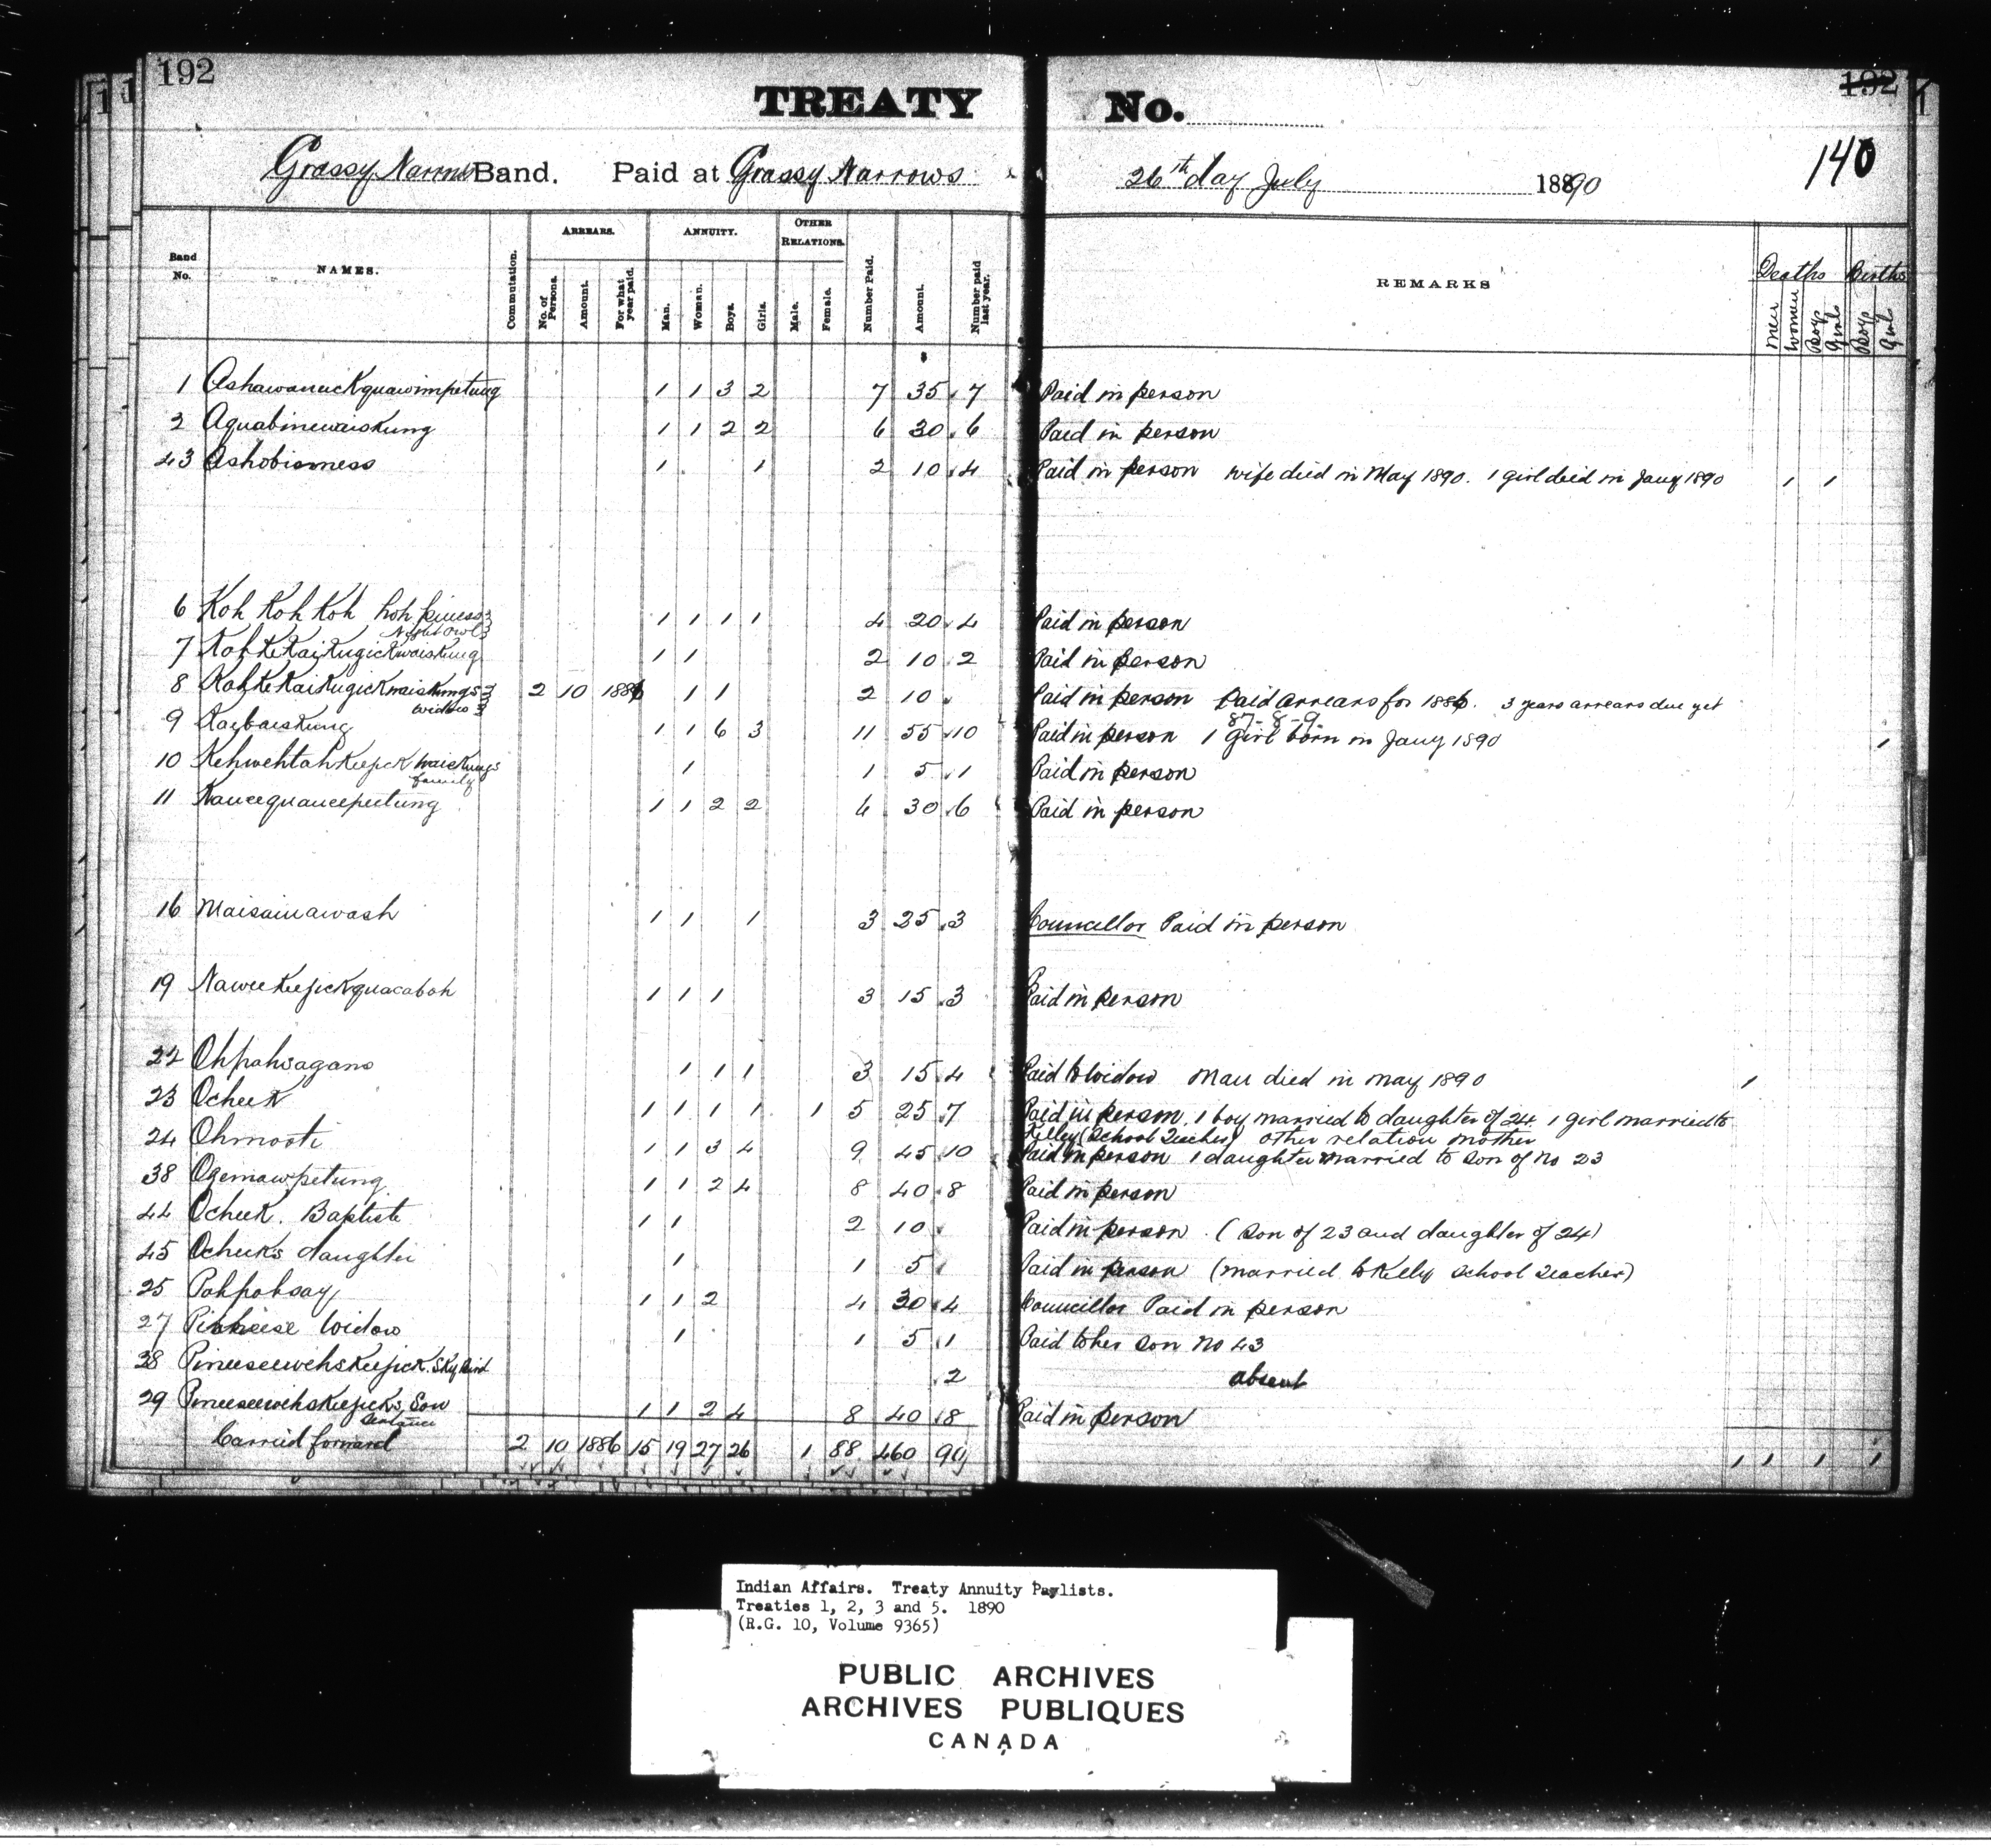 192
192
TREATY No.
140
Grassy Narrows Band. Paid at Grassy Narrows 26th day July 1890
Band No. NAMES. Commutation. ARREARS. No. of Persons. Amount. For what year paid. ANNUITY. Man. Woman. Boys. Girls. OTHER RELATIONS. Male. Female. Number Paid. Amount. Number paid last year. REMARKS Deaths Men Women Boys Girls Births Boys Girls
1 Ashawanuckquawimpetung 1 1 3 2 7 35 7 Paid in person
2 Aquabinewaiskung 1 1 2 2 6 30 6 Paid in person
43 Ashobisness 1 1 2 10 4 Paid in person wife died in May 1890. 1 girl died in Jany 1890 1 1
6 Koh Koh Koh hoh 1 1 1 1 4 20 4 Paid in person
Night Owl
7 KohKeKaiKugicKwaiskung 1 1 2 10 2 Paid in person
8 KohKeKaiKugicKwaiskungs 2 10 1886 1 1 2 10 Paid in person Paid arrears for 1886. 3 years arrears due yet
widow 87-8-9
9 Kaybaiskung 1 1 6 3 11 55 10 Paid in person 1 girl born in Jany 1890 1
10 KehwehtahKeejickwaiskungs 1 1 5 1 Paid in person
family
11 Kaucequaucepeetung 1 1 2 2 6 30 6 Paid in person
16 Maisainawash 1 1 1 3 25 3 Councillor Paid in person
19 NaweeKeejickquacaboh 1 1 1 3 15 3 Paid in person
22 Ohpahsagano 1 1 1 3 15 4 Paid to widow Man died in May 1890 1
23 Ocheek 1 1 1 1 1 5 25 7 Paid in person. 1 boy married to daughter of 24 1 girl married to
Kelley (School Teacher) other relation mother
24 Ohmooti 1 1 3 4 9 45 10 Paid in person 1 daughter married to son of no 23
38 Ogemawpetung 1 1 2 4 8 40 8 Paid in person
44 Ocheek. Baptiste 1 1 2 10 Paid in person. (Son of 23 and daughter of 24)
45 Ocheeks daughter 1 1 5 Paid in person (married to Kelly School Teacher)
25 Pahpahsay 1 1 2 4 30 4 Councillor Paid in person
27 Widow 1 1 5 1 Paid to her son no 43
28 PineeseewehsKeejick. Sky Bird 2 absent
29 PineeseewehsKeejicks Son 1 1 2 4 8 40 8 Paid in person
Carried forward 2 10 1886 15 19 27 26 1 88 460 90 1 1 1 1
Indian Affairs. Treaty Annuity Paylists.
Treaties 1, 2, 3 and 5. 1890
(R.G. 10, Volume 9365)
PUBLIC ARCHIVES
ARCHIVES PUBLIQUES
CANADA